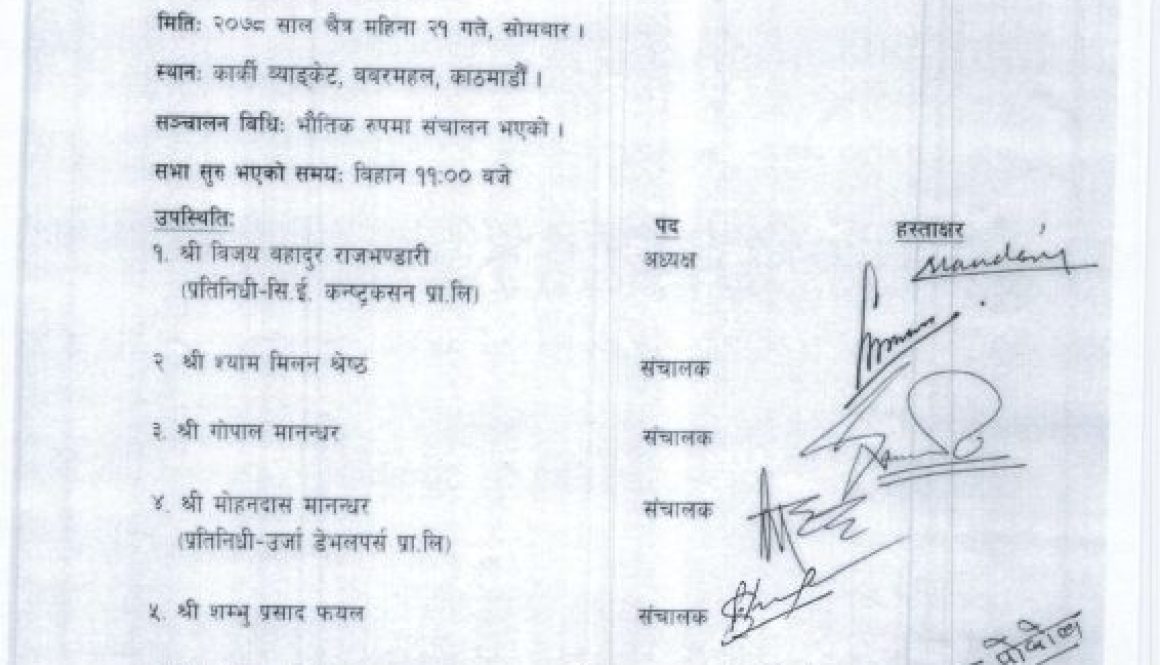 मिति: २०७८ साल चैत्र महिना २१ गते, सोमबार ।
स्थान: कार्की व्याङ्केट, बबरमहल, काठमाडौं ।
सञ्चालन बिधि: भौतिक रुपमा संचालन भएको ।
सभा सुरु भएको समय: विहान ११:०० बजे
उपस्थिति: पद हस्ताक्षर
१. श्री विजय बहादुर राजभण्डारी अध्यक्ष
(प्रतिनिधी-सि.ई. कन्ष्ट्रकसन प्रा.लि)
२ श्री श्याम मिलन श्रेष्ठ संचालक
३. श्री गोपाल मानन्धर संचालक
४. श्री मोहनदास मानन्धर संचालक
(प्रतिनिधी-उर्जा डेभलपर्स प्रा.लि)
५. श्री शम्भु प्रसाद फयल संचालक